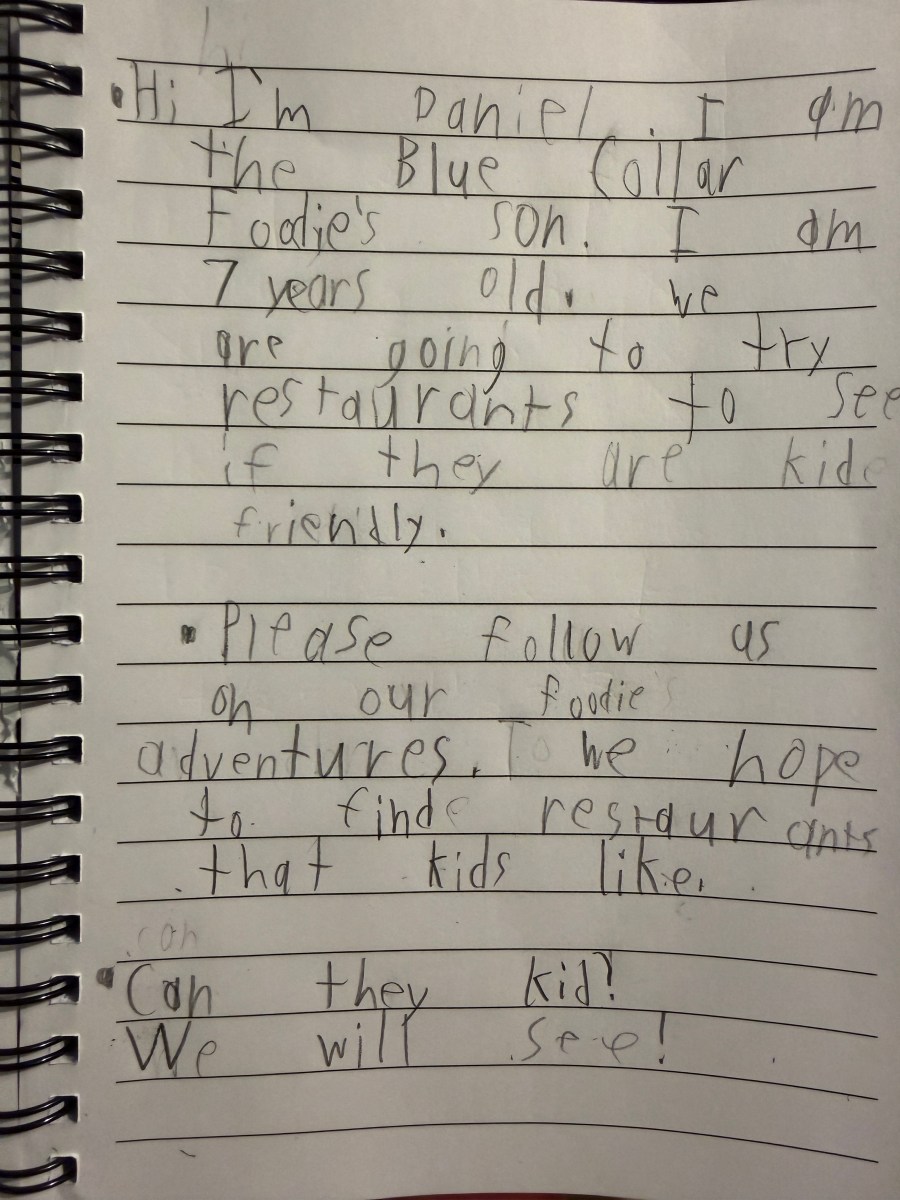 •Hi I'm Daniel. I am
the Blue Collar
Foodie's son. I am
7 years old. we
are going to try
restaurants to see
if they are kid
friendly.
• Please follow us
on our foodie's
adventures. We hope
to find restaurants
that kids like.
can
•Can they kid?
We will see!